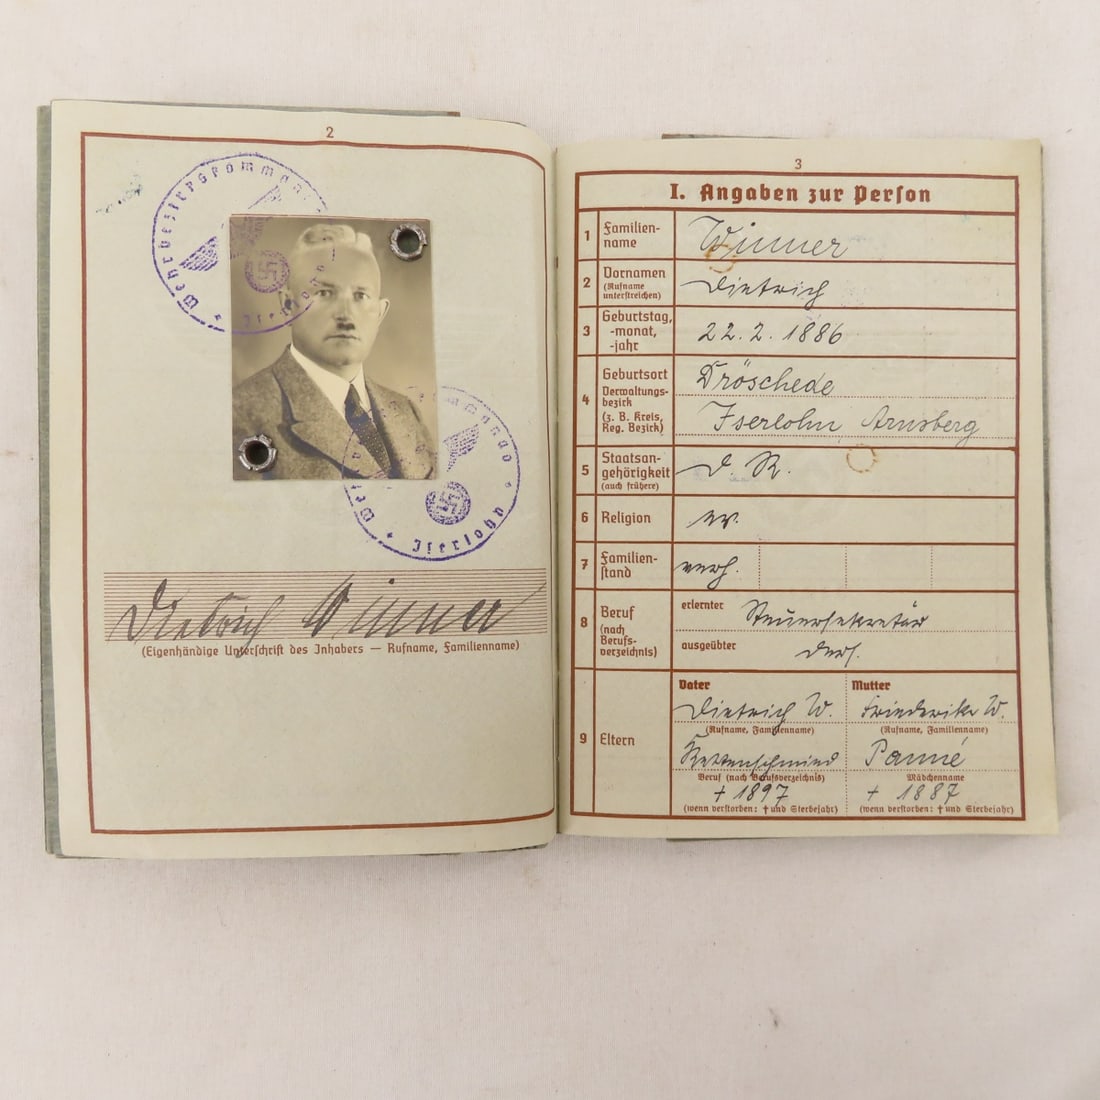 2
Wehrbezirkskommando
Iserlohn
Wehrbezirkskommando
Iserlohn
Dietrich Winner
(Eigenhändige Unterschrift des Inhabers — Rufname, Familienname)
3
I. Angaben zur Person
1 Familien-
name
Winner
2 Vornamen
(Rufname
unterstreichen)
Dietrich
3 Geburtstag,
-monat,
-jahr
22. 2. 1886
4 Geburtsort
Verwaltungs-
bezirk
(z. B. Kreis,
Reg. Bezirk)
Dröschede
Iserlohn Arnsberg
5 Staatsan-
gehörigkeit
(auch frühere)
D. R.
6 Religion
ev.
7 Familien-
stand
verh.
8 Beruf
(nach
Berufs-
verzeichnis)
erlernter
Steuersekretär
ausgeübter
ders.
9 Eltern
Vater
Dietrich W.
(Rufname, Familienname)
Kettenschmied
Beruf (nach Berufsverzeichnis)
† 1897
(wenn verstorben: † und Sterbejahr)
Mutter
Friederike W.
(Rufname, Familienname)
Panne
Mädchenname
† 1887
(wenn verstorben: † und Sterbejahr)